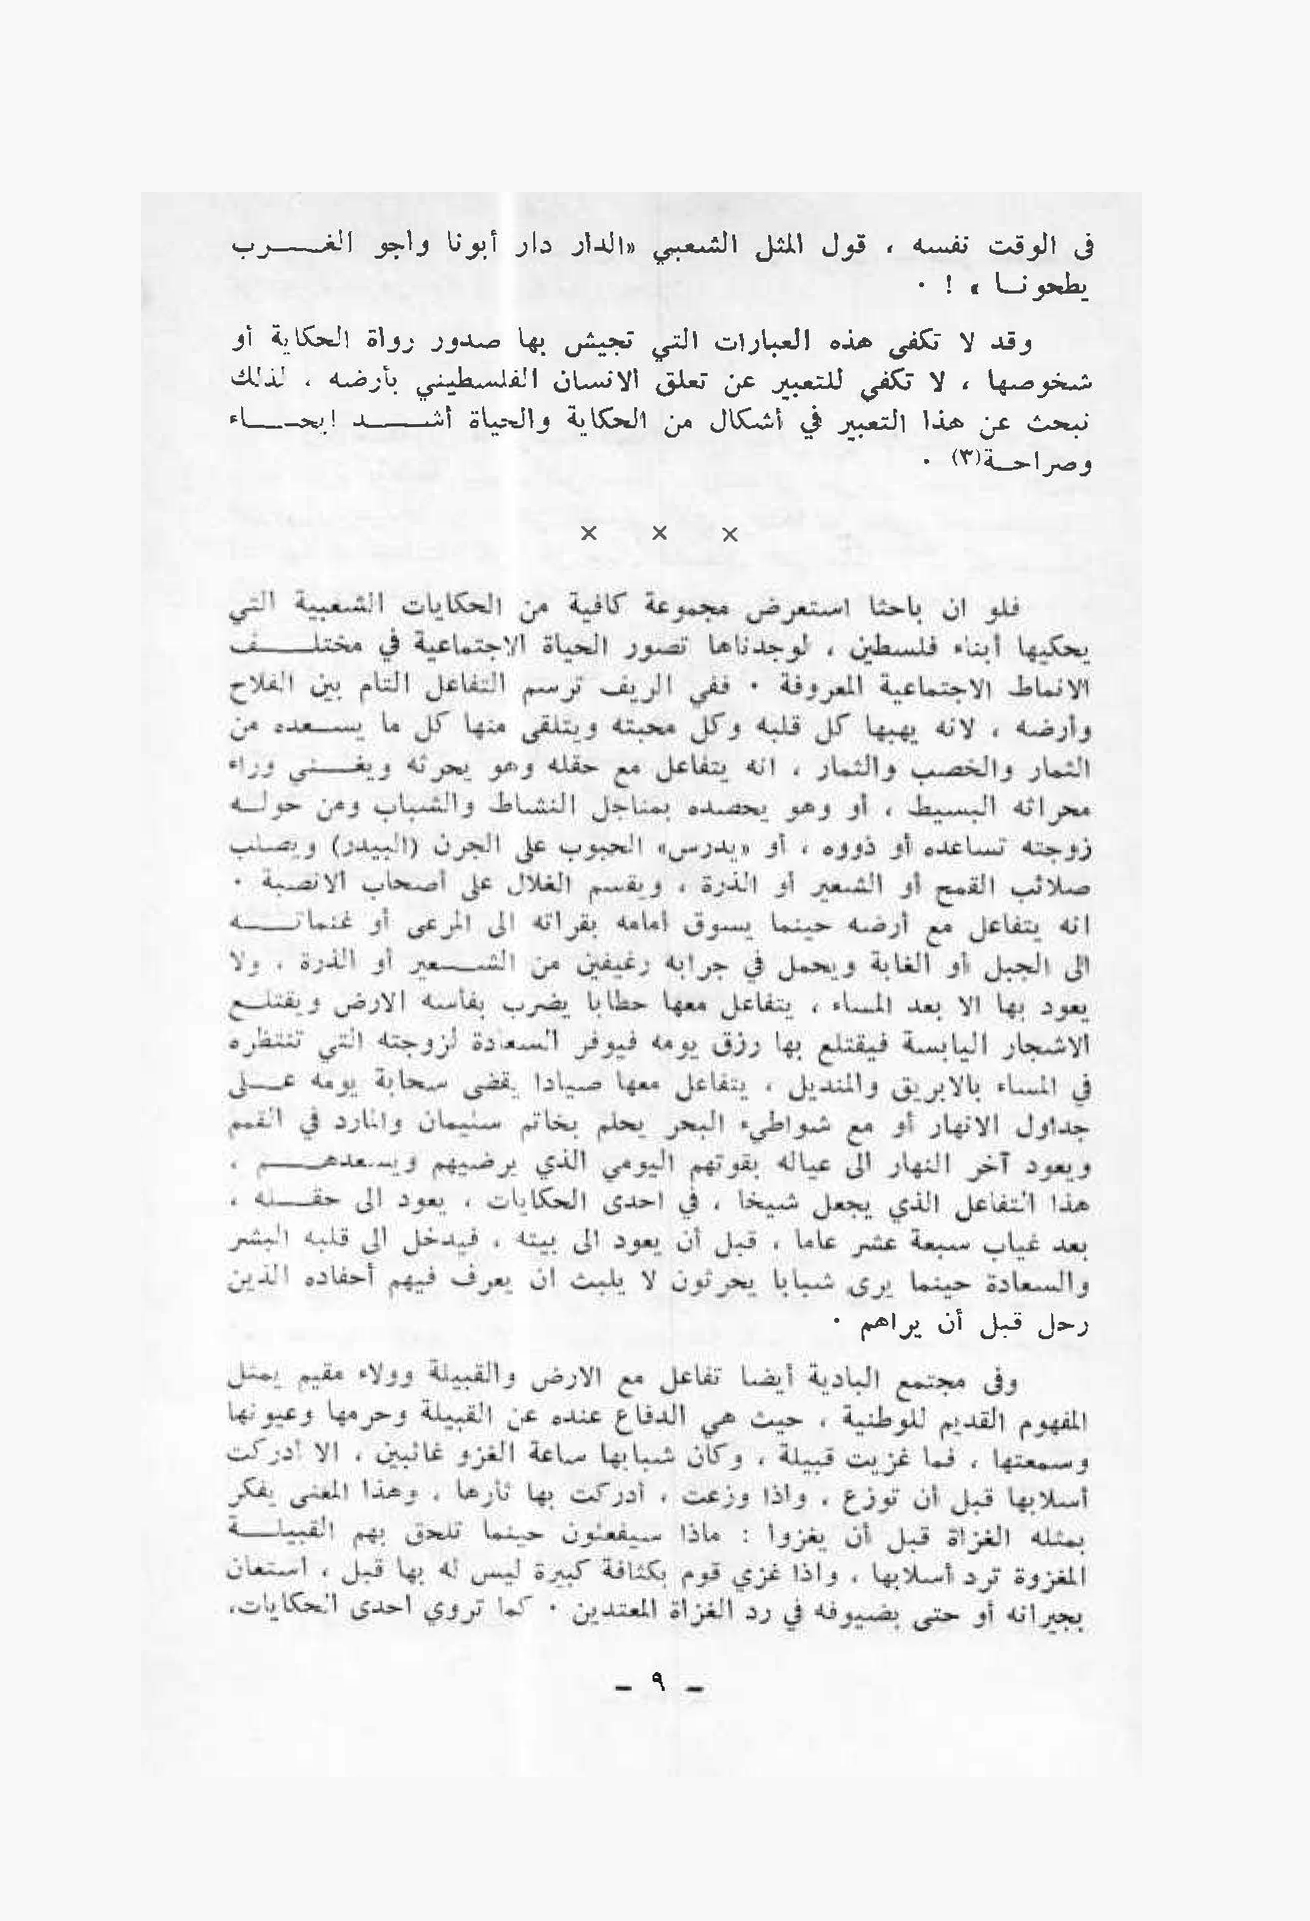 في الوقت نفسه ، قول المثل الشعبي «الدار دار أبونا واجو الغرب
يطحونا » ! ·
وقد لا تكفي هذه العبارات التي تجيش بها صدور رواة الحكاية أو
شخوصها ، لا تكفي للتعبير عن تعلق الانسان الفلسطيني بأرضه ، لذلك
نبحث عن هذا التعبير في أشكال من الحكاية والحياة أشد ايحاء
وصراحة(٣) ·
× × ×
فلو ان باحثا استعرض مجموعة كافية من الحكايات الشعبية التي
يحكيها أبناء فلسطين ، لوجدناها تصور الحياة الاجتماعية في مختلف
الانماط الاجتماعية المعروفة · ففي الريف ترسم التفاعل التام بين الفلاح
وأرضه ، لانه يهبها كل قلبه وكل محبته ويتلقى منها كل ما يسعده من
الثمار والخصب والثمار ، انه يتفاعل مع حقله وهو يحرثه ويغني وراء
محراثه البسيط ، أو وهو يحصده بمناجل النشاط والشباب ومن حوله
زوجته تساعده أو ذووه ، أو «يدرس» الحبوب على الجرن (البيدر) ويصلب
صلائب القمح أو الشعير أو الذرة ، ويقسم الغلال على أصحاب الانصبة ·
انه يتفاعل مع أرضه حينما يسوق أمامه بقراته الى المرعى أو غنماته
الى الجبل أو الغابة ويحمل في جرابه رغيفين من الشعير أو الذرة ، ولا
يعود بها الا بعد المساء ، يتفاعل معها حطابا يضرب بفأسه الارض ويقتلع
الاشجار اليابسة فيقتلع بها رزق يومه فيوفر السعادة لزوجته التي تنتظره
في المساء بالابريق والمنديل ، يتفاعل معها صيادا يقضى سحابة يومه على
جداول الانهار أو مع شواطيء البحر يحلم بخاتم سليمان والمارد في القمم
ويعود آخر النهار الى عياله بقوتهم اليومي الذي يرضيهم ويسعدهم ،
هذا التفاعل الذي يجعل شيخا ، في احدى الحكايات ، يعود الى حقله ،
بعد غياب سبعة عشر عاما ، قبل أن يعود الى بيته ، فيدخل الى قلبه البشر
والسعادة حينما يرى شبابا يحرثون لا يلبث ان يعرف فيهم أحفاده الذين
رحل قبل أن يراهم ·
وفي مجتمع البادية أيضا تفاعل مع الارض والقبيلة وولاء مقيم يمثل
المفهوم القديم للوطنية ، حيث هي الدفاع عنده عن القبيلة وحرمها وعيونها
وسمعتها ، فما غزيت قبيلة ، وكان شبابها ساعة الغزو غائبين ، الا أدركت
أسلابها قبل أن توزع ، واذا وزعت ، أدركت بها ثأرها ، وهذا المعنى يفكر
بمثله الغزاة قبل أن يغزوا : ماذا سيفعلون حينما تلحق بهم القبيلة
المغزوة ترد أسلابها ، واذا غزي قوم بكثافة كبيرة ليس له بها قبل ، استعان
بجيرانه أو حتى بضيوفه في رد الغزاة المعتدين · كما تروي احدى الحكايات،
– ٩ –